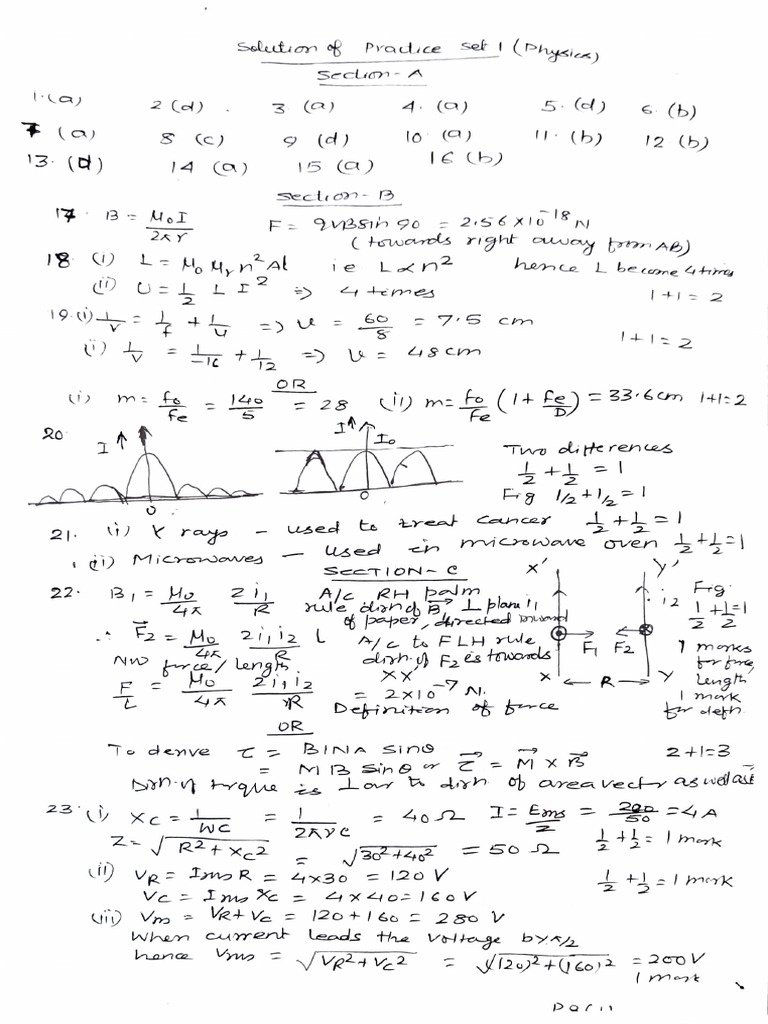 Solution of Practice Set 1 (Physics)
Section-A
1.(a) 2 (d). 3 (a) 4. (a) 5. (d) 6. (b)
7 (a) 8 (c) 9 (d) 10. (a) 11. (b) 12 (b)
13. (d) 14 (a) 15 (a) 16 (b)
Section-B
17. B = M₀I/2πr F = qVBsin 90 = 2.56 × 10⁻¹⁸ N
(towards right away from AB)
18 (i) L = M₀ Mᵣ n² Al ie L ∝ n² hence L become 4 times
(ii) U = 1/2 L I² ⇒ 4 times 1+1 = 2
19.(i) 1/V = 1/f + 1/u ⇒ V = 60/8 = 7.5 cm
1+1 = 2
(i) 1/V = 1/-16 + 1/12 ⇒ V = 48 cm
OR
(i) m = fo/fe = 140/5 = 28 (ii) m = fo/fe (1 + fe/D) = 33.6cm 1+1=2
20. I O I I₀ O
Two differences
1/2 + 1/2 = 1
Fig 1/2 + 1/2 = 1
21. (i) X rays – used to treat cancer 1/2 + 1/2 = 1
(ii) Microwaves – used in microwave oven 1/2 + 1/2 = 1
SECTION-C
22. B₁ = M₀/4π 2i₁/R A/c RH palm
rule dirn of B ⊥ plane
of paper, directed
∴ F⃗₂ = M₀/4π 2i₁i₂/R L A/c to FLH rule
dirn of F₂ is towards
XX'
Now force/length
F/L = M₀/4π 2i₁i₂/R = 2×10⁻⁷ N.
Definition of force
X' Y' i₁ i₂ F₁ F₂ X R Y
Fig.
1/2 + 1/2 = 1
1 marks
for force
length
1 mark
for defn
OR
To derive τ = BINA sinθ 2+1=3
= MB sinθ or τ⃗ = M⃗ × B⃗
Dirn of torque is ⊥ar to dirn of area vector as well as B⃗
23. (i) Xc = 1/WC = 1/2πνC = 40 Ω I = Erms/Z = 200/50 = 4A
Z = √R² + Xc² = √30² + 40² = 50 Ω 1/2 + 1/2 = 1 mark
(ii) VR = Irms R = 4×30 = 120 V 1/2 + 1/2 = 1 mark
Vc = Irms Xc = 4 × 40 = 160 V
(iii) Vrms = VR + Vc = 120 + 160 = 280 V
When current leads the voltage by π/2
hence Vrms = √VR² + Vc² = √(120)² + (160)² = 200 V
1 mark